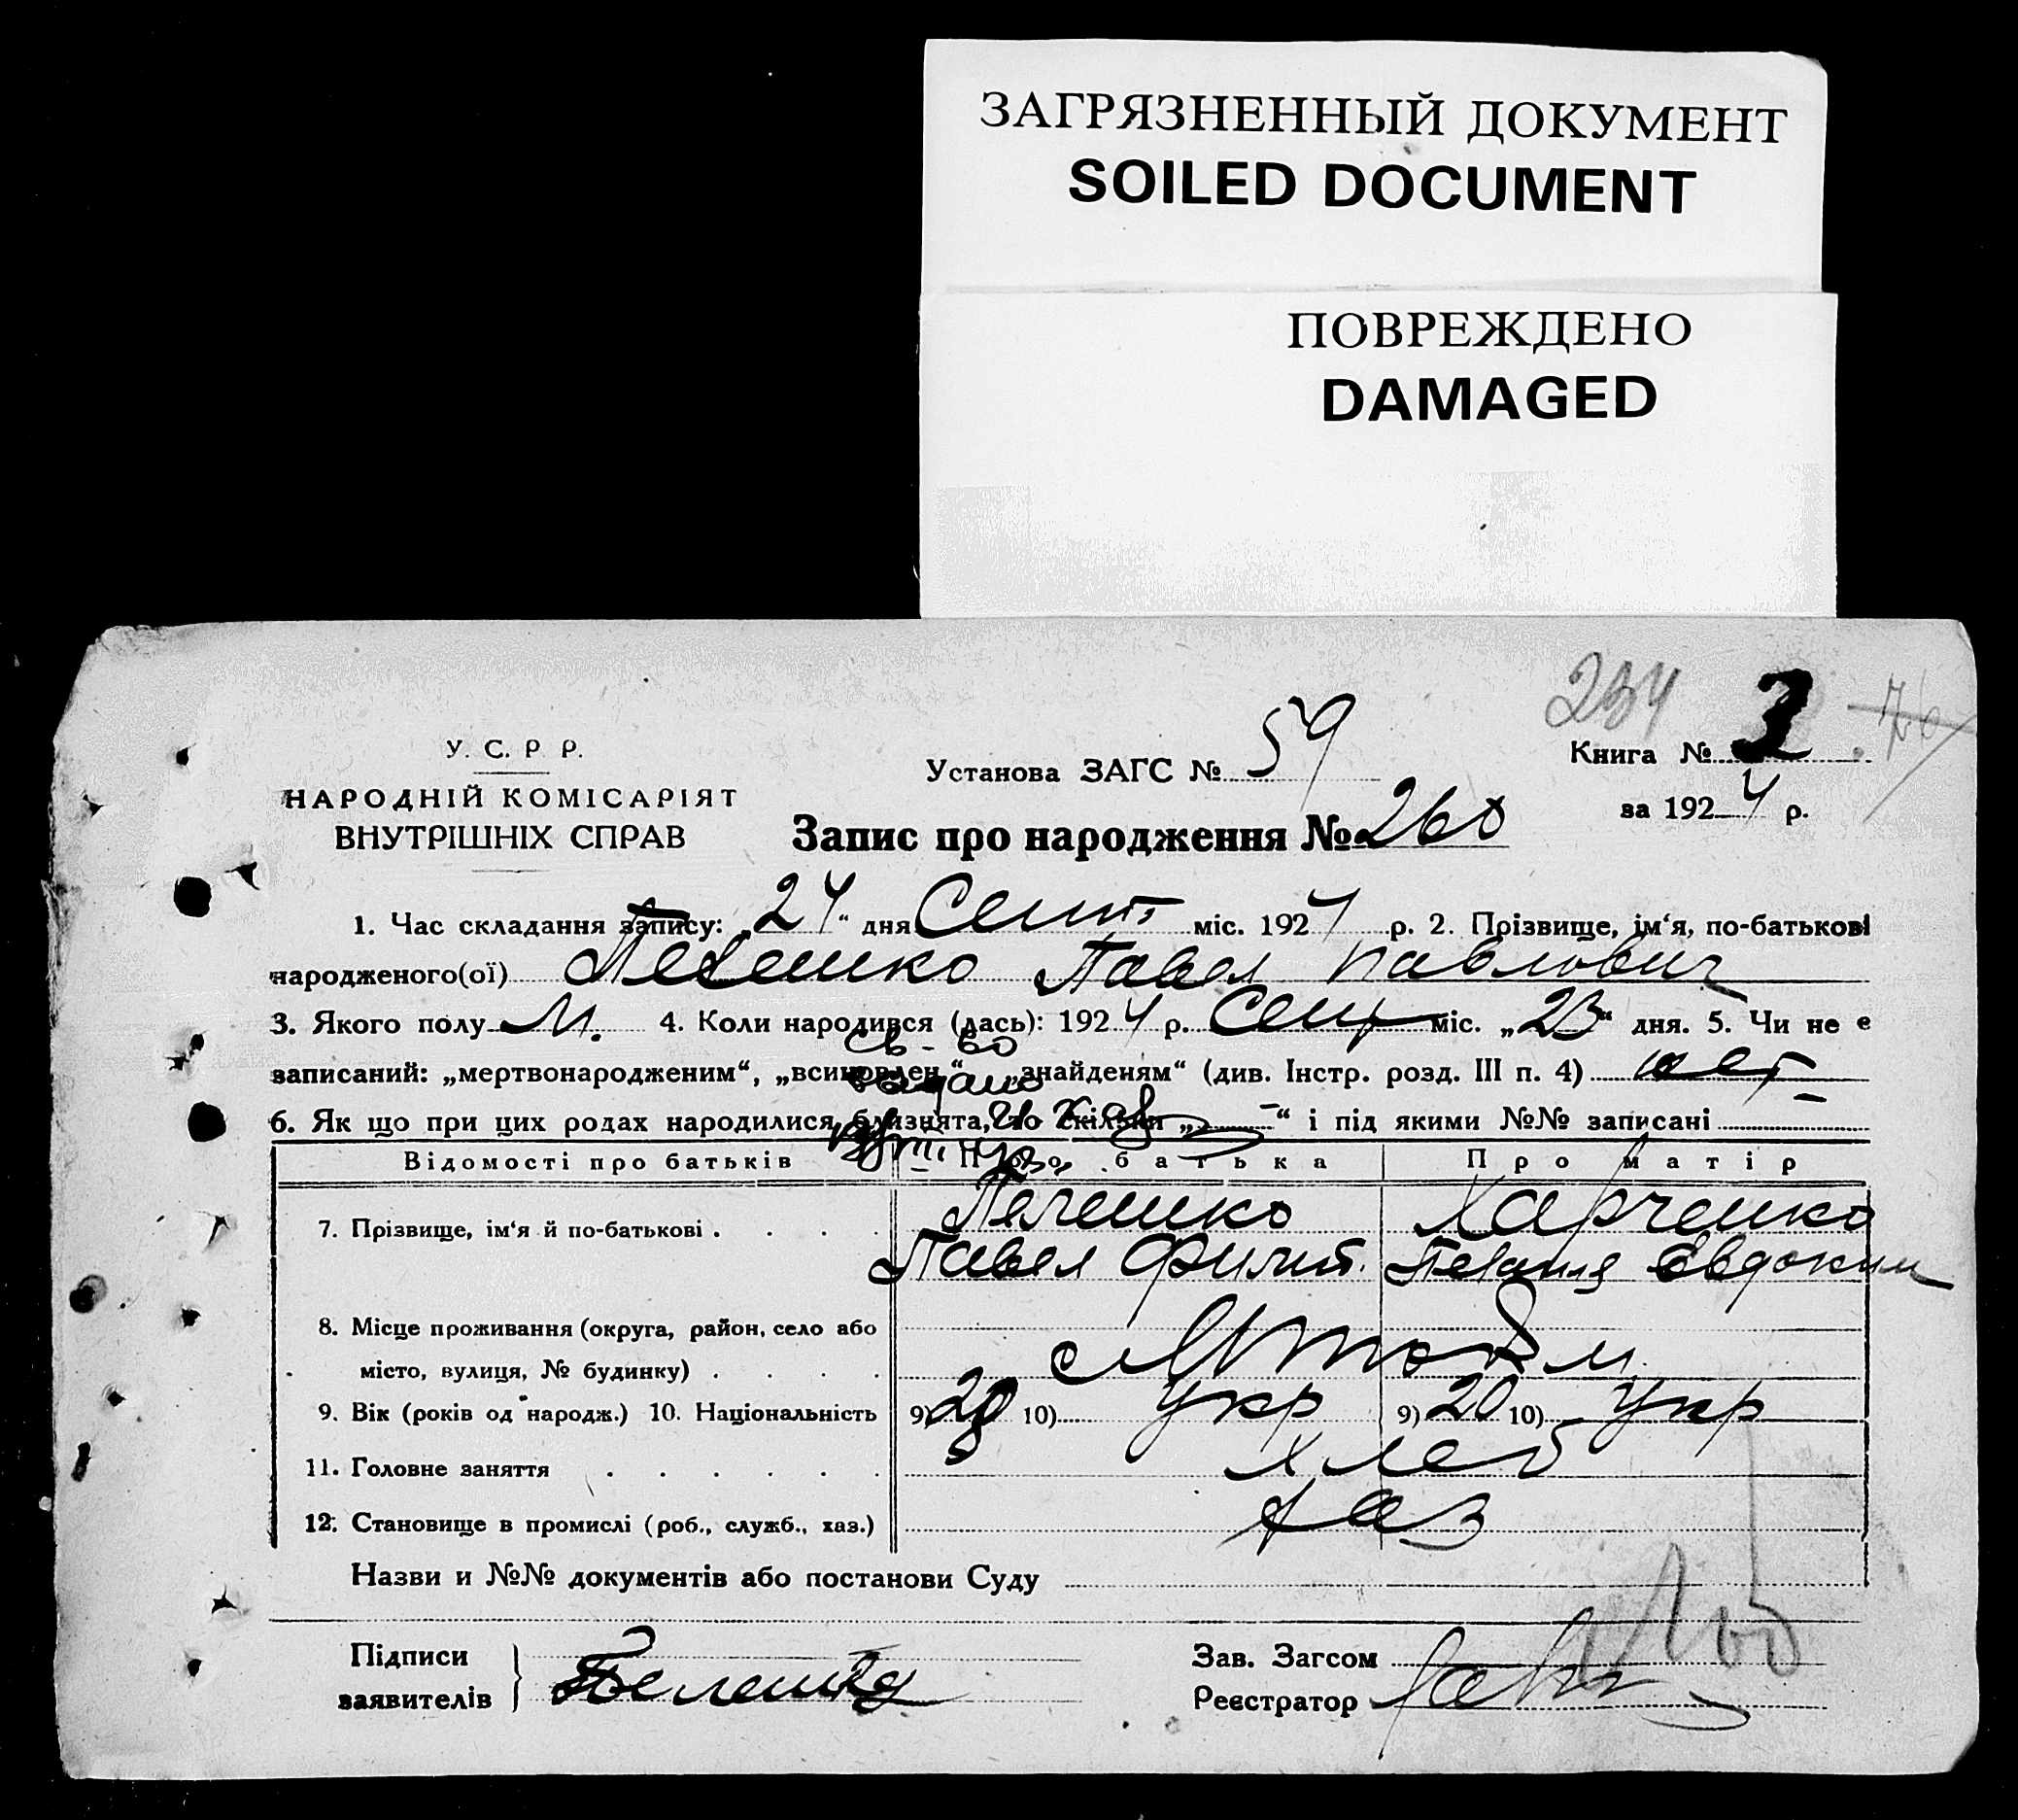 ЗАГРЯЗНЕННЫЙ ДОКУМЕНТ
SOILED DOCUMENT
ПОВРЕЖДЕНО
DAMAGED
234
У. С. Р Р.
НАРОДНІЙ КОМІСАРІЯТ
ВНУТРІШНІХ СПРАВ
Установа ЗАГС № 59
Книга № 3
за 1924 р.
Запис про народження № 260
1. Час складання запису: „24“ дня Сент міс. 1924 р. 2. Прізвище, ім‘я, по-батькові
народженого(ої) Павел Павлович
3. Якого полу М. 4. Коли народився (лась): 1924 р. Сент міс. „23“ дня. 5. Чи не є
св-во
записаний: „мертвонародженим“, „всиновлен.“ „знайденям“ (див. Інстр. розд. III п. 4) нет
видано
6. Як що при цих родах народилися близнята, то скільки „ “ і під якими №№ записані
Відомості про батьків Про батька Про матір
7. Прізвище, ім‘я й по-батькові Пелешко Харченко
Павел Филип. Евдоким
8. Місце проживання (округа, район, село або
місто, вулиця, № будинку)
9. Вік (років од народж.) 10. Національність 9) 20 10) укр 9) 20 10) укр
11. Головне заняття хлеб
12. Становище в промислі (роб., служб., хаз.) хаз
Назви и №№ документів або постанови Суду
Підписи
заявителів
Зав. Загсом
Реєстратор